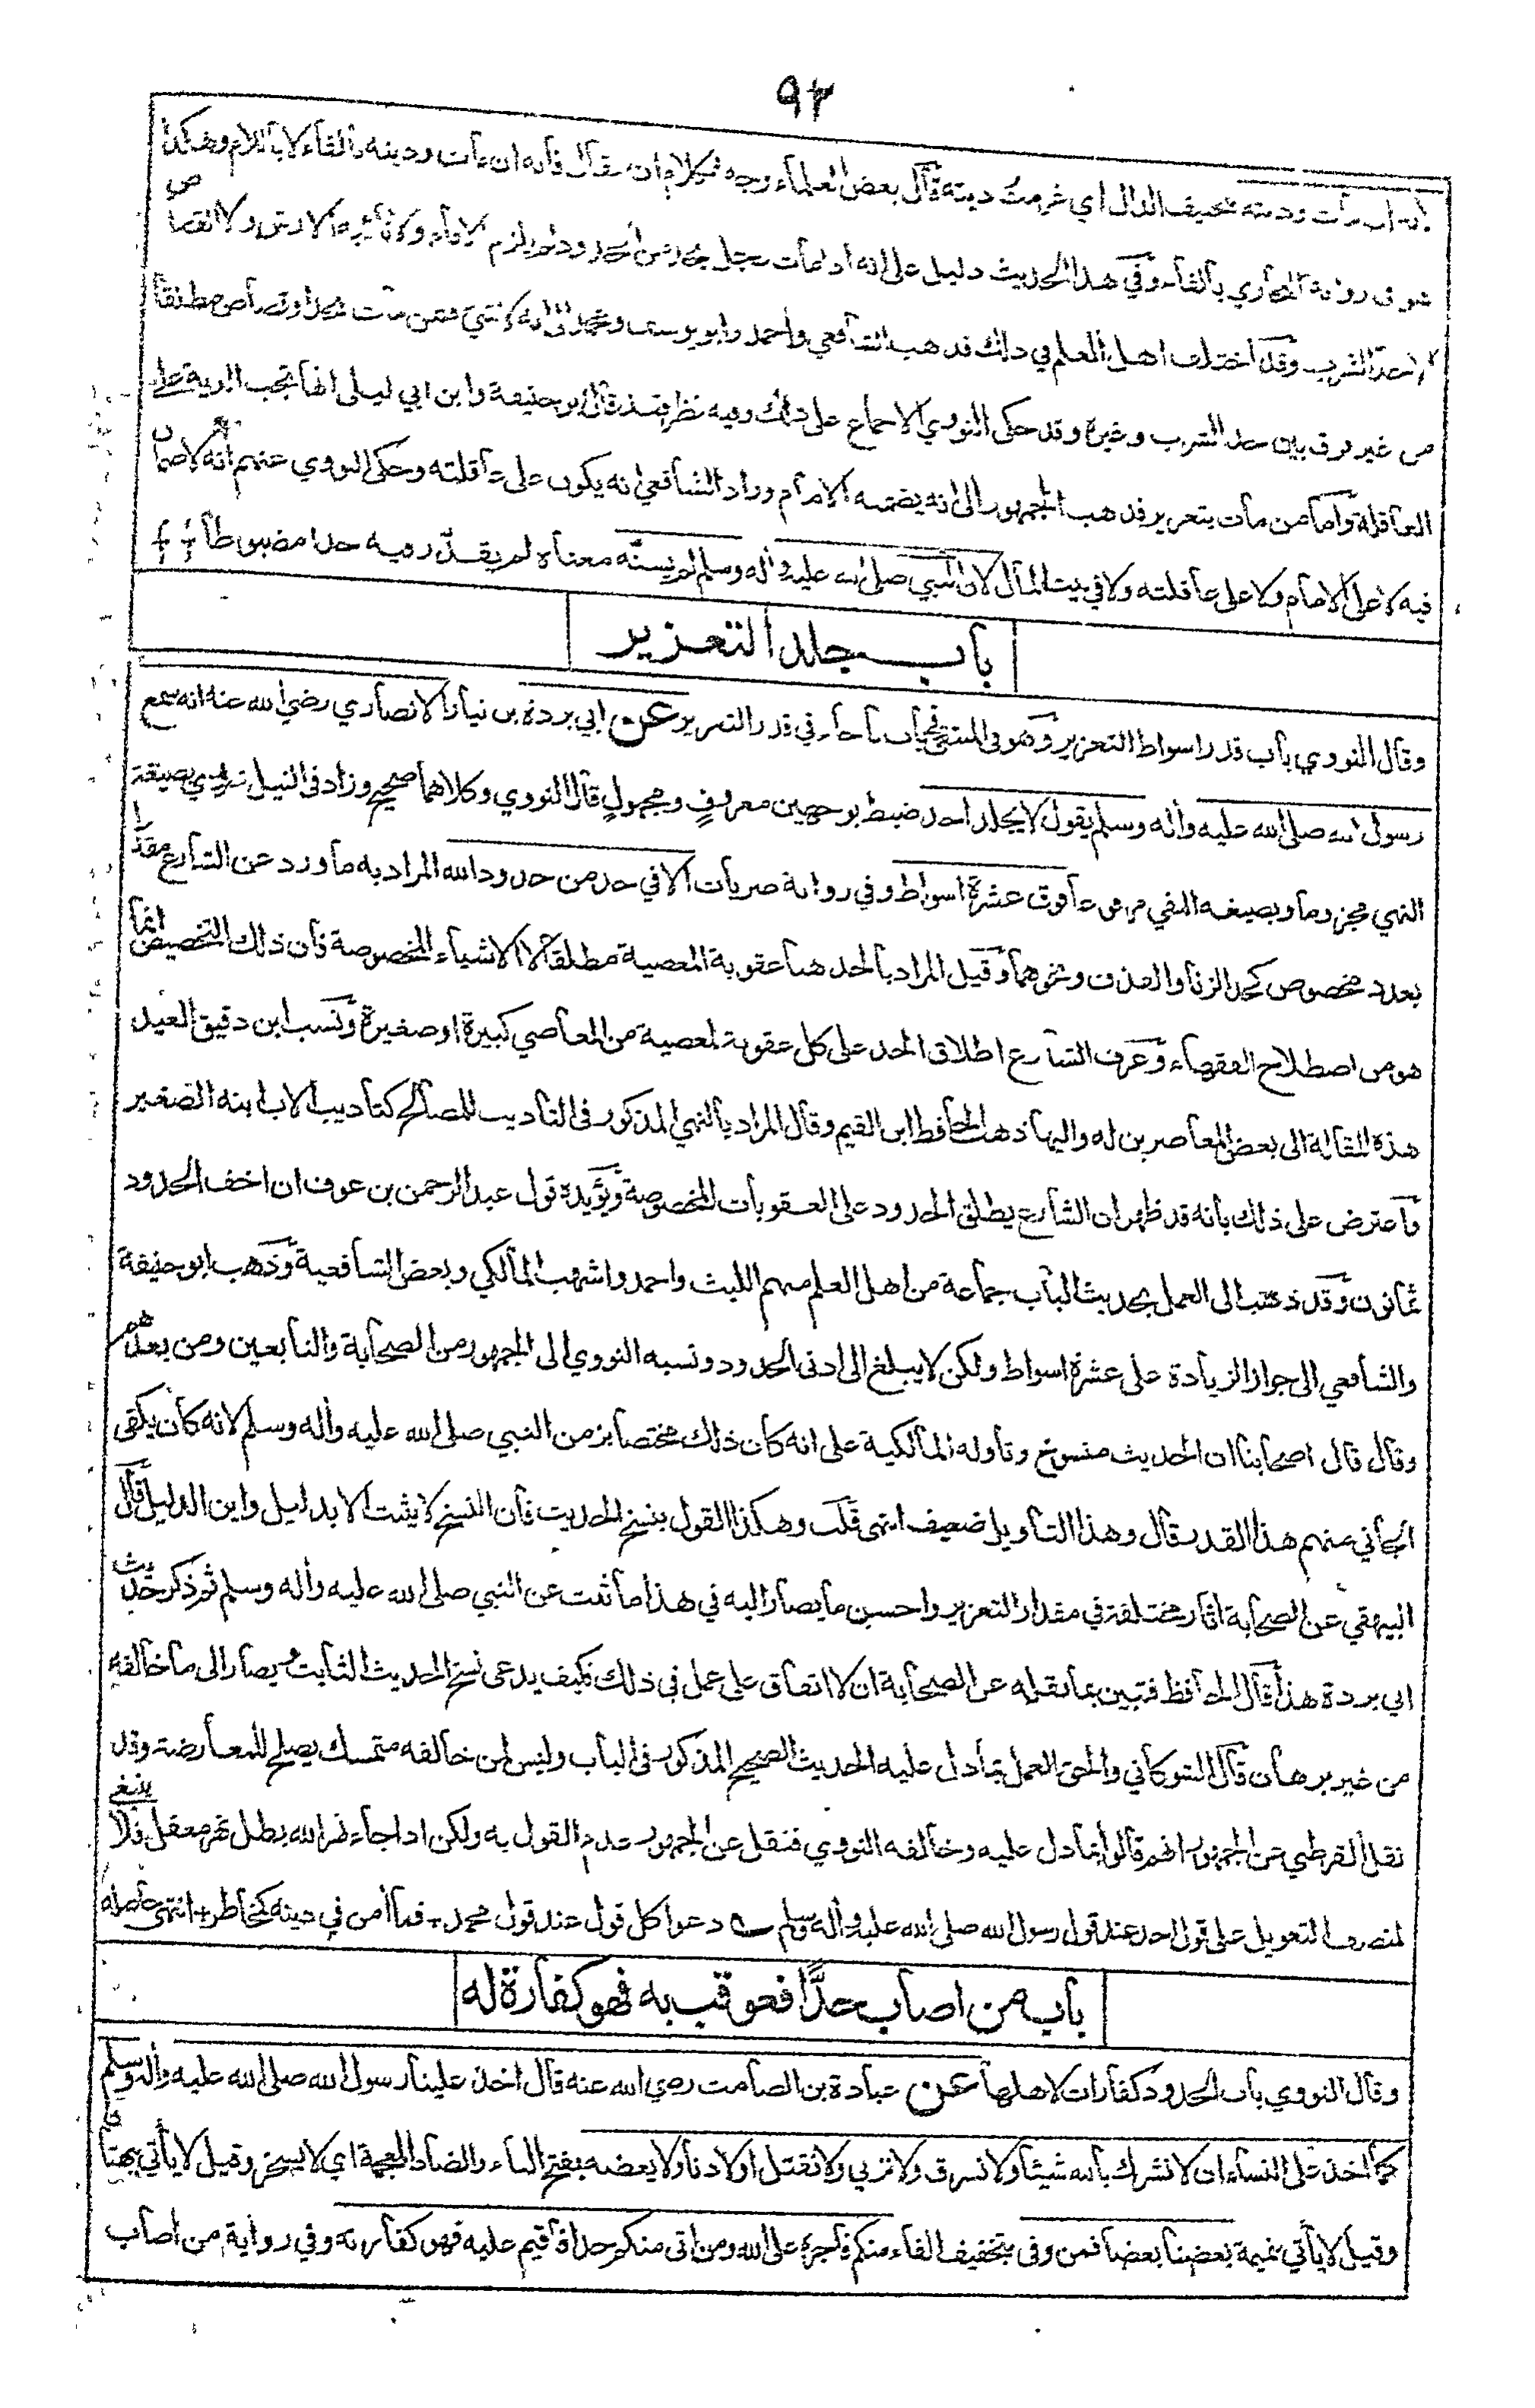 ٩٣
لأنه ان مات وديته بتخفيف الدال اي غرمت ديته قال بعض العلماء وجه الكلام ان يقال فانه ان مات وديته بالفاء لا باللام وهكذا
هو في رواية البخاري بالفاء وفي هذا الحديث دليل على انه اذا مات رجل بحد من الحدود لم يلزم الامام ولا نائبه الارش ولا القصاص
الا حد الشرب وقد اختلف اهل العلم في ذلك فذهب الشافعي واحمد وابو يوسف ومحمد الى انه لا شيء فمن مات بحد او قصاص مطلقا
من غير فرق بين حد الشرب وغيره وقد حكى النووي الاجماع على ذلك وفيه نظر فقد قال ابو حنيفة وابن ابي ليلى انها تجب الدية على
العاقلة واما من مات بتعزير فذهب الجمهور الى انه يضمنه الامام وزاد الشافعي انه يكون على عاقلته وحكى النووي عنهم انه لا ضمان
فيه لا على الامام ولا على عاقلته ولا في بيت المال لان النبي صلى الله عليه واله وسلم لم يسنّه معناه لم يقدّر فيه حدا مضبوطا
باب جلد التعزير
وقال النووي باب قدر اسواط التعزير وهو في المنتقى باب ما جاء في قدر التعزير عن ابي بردة بن نيار الانصاري رضي الله عنه انه سمع
رسول الله صلى الله عليه واله وسلم يقول لا يجلد احد ضبط بوجهين معروفٍ ومجهولٍ قال النووي وكلاهما صحيح وزاد في النيل روي بصيغة
النهي مجزوما وبصيغة النفي مرفوعا فوق عشرة اسواط وفي رواية ضربات الا في حد من حدود الله المراد به ما ورد عن الشارع مقدرا
بعدد مخصوص كحد الزنا والقذف ونحوهما وقيل المراد بالحد هنا عقوبة المعصية مطلقا لا الاشياء المخصوصة فان ذلك التخصيص انما
هو من اصطلاح الفقهاء وعرف الشارع اطلاق الحد على كل عقوبة لمعصية من المعاصي كبيرة او صغيرة ونسب ابن دقيق العيد
هذه المقالة الى بعض المعاصرين له واليها ذهب الحافظ ابن القيم وقال المراد بالنهي المذكور في التأديب للمصالح كتأديب الاب ابنه الصغير
واعترض على ذلك بانه قد ظهر ان الشارع يطلق الحدود على العقوبات المخصوصة ويؤيده قول عبد الرحمن بن عوف ان اخف الحدود
ثمانون وقد ذهب الى العمل بحديث الباب جماعة من اهل العلم منهم الليث واحمد واشهب المالكي وبعض الشافعية وذهب ابو حنيفة
والشافعي الى جواز الزيادة على عشرة اسواط ولكن لا يبلغ الى ادنى الحدود ونسبه النووي الى الجمهور من الصحابة والتابعين ومن بعدهم
وقال قال اصحابنا ان الحديث منسوخ وتأوله المالكية على انه كان ذلك مختصا بزمن النبي صلى الله عليه واله وسلم لانه كان يكفي
الجاني منهم هذا القدر قال وهذا التأويل ضعيف انتهى قلت وهكذا القول بنسخ الحديث فان النسخ لا يثبت الا بدليل واين الدليل قال
البيهقي عن الصحابة اثار مختلفة في مقدار التعزير واحسن ما يصار اليه في هذا ما ثبت عن النبي صلى الله عليه واله وسلم ثم ذكر حديث
ابي بردة هذا قال الحافظ فتبين بما نقله عن الصحابة ان لا اتفاق على عمل في ذلك فكيف يدعى نسخ الحديث الثابت ويصار الى ما خالفه
من غير برهان قال الشوكاني والحق العمل بما دل عليه الحديث الصحيح المذكور في الباب وليس لمن خالفه متمسك يصلح للمعارضة وقد
نقل القرطبي عن الجمهور انهم قالوا بما دل عليه وخالفه النووي فنقل عن الجمهور عدم القول به ولكن اذا جاء نهر الله بطل نهر معقل فلا ينبغي
لمنصف التعويل على قول احد عند قول رسول الله صلى الله عليه واله وسلم دعوا كل قول عند قول محمد + فما آمن في دينه كمخاطر + انتهى حاصله
باب من اصاب حدًّا فعوقب به فهو كفارة له
وقال النووي باب الحدود كفارات لاهلها عن عبادة بن الصامت رضي الله عنه قال اخذ علينا رسول الله صلى الله عليه واله وسلم
كما اخذ على النساء ان لا نشرك بالله شيئا ولا نسرق ولا نزني ولا نقتل اولادنا ولا يعضه بفتح الياء والضاد المعجمة اي لا يسخر وقيل لا يأتي ببهتان
وقيل لا يأتي بنميمة بعضنا بعضا فمن وفى بتخفيف الفاء منكم فاجره على الله ومن اتى منكم حدا فاقيم عليه فهو كفارته وفي رواية من اصاب